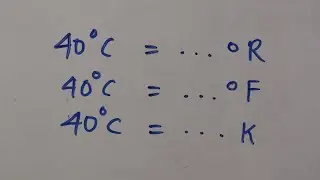 40°C = ... °R
40°C = ... °F
40°C = .... K